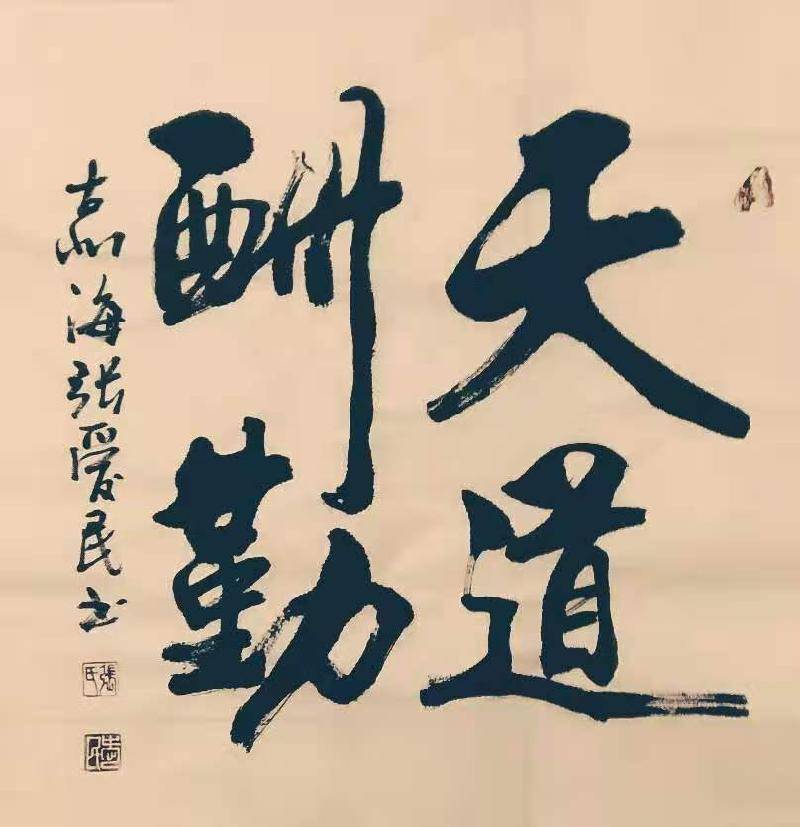 天道
酬勤
嘉海张爱民书